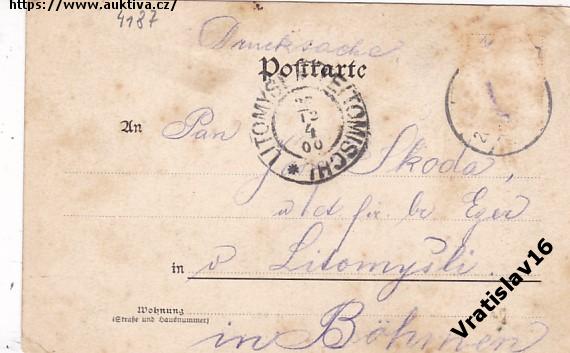 https://www.auktiva.cz/
4187
Drucksache
Postkarte
LITOMYŠL LEITOMISCHL
12
4
00
An Pan
Skoda,
Eger
in v Litomyšli.
Wohnung
(Straße und Hausnummer)
in Böhmen
Vratislav16